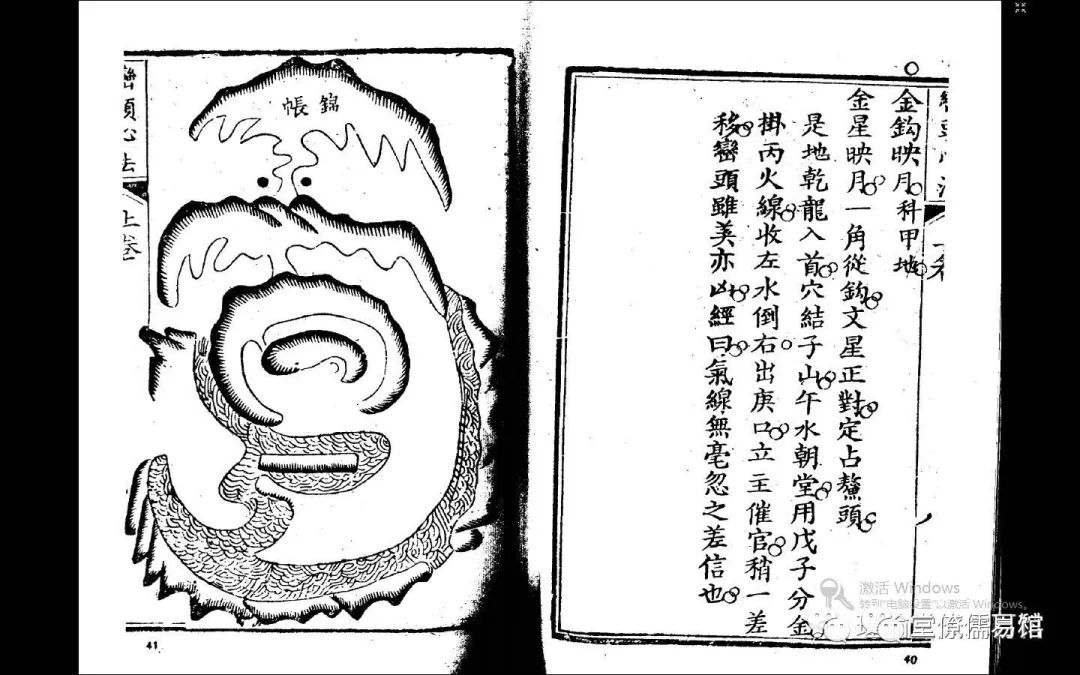 金鈎映月科甲地
金星映月一角從鈎文星正對定占鰲頭
是地乾龍入首穴結子山午水朝堂用戊子分金
掛丙火線收左水倒右出庚口立主催官稍一差
移巒頭雖美亦凶經曰氣線無毫忽之差信也
40
錦帳
巒頭心法
上卷
41
激活 Windows
转到"电脑设置"以激活 Windows。
堂僚儒易館